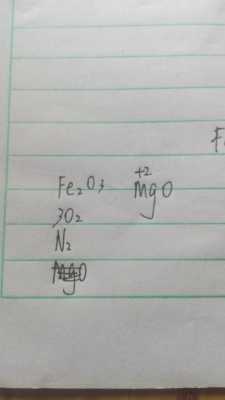 Fe₂O₃ +2 MgO
3O₂
N₂